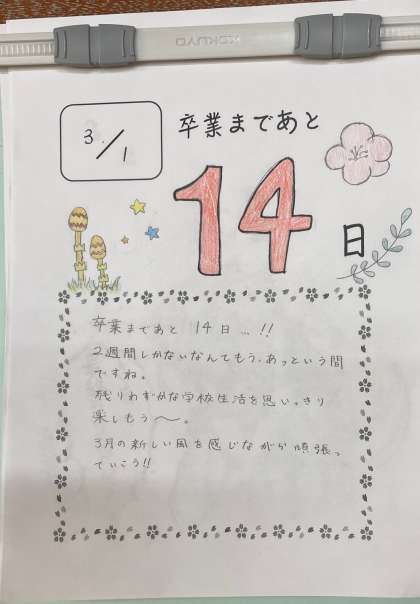 KOKUYO
3/1
卒業まであと
14
日
卒業まであと 14日…!!
2週間しかないなんてもう、あっという間
ですね。
残りわずかな学校生活を思いっきり
楽しもう〜。
3月の新しい風を感じながら頑張っ
ていこう!!